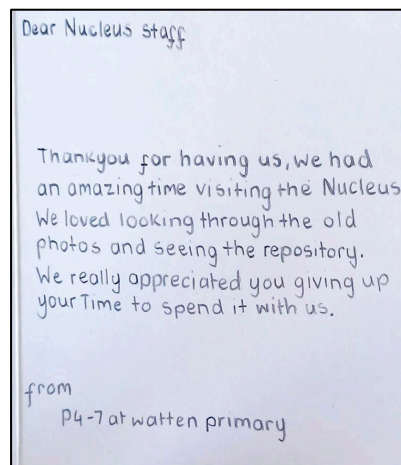 Dear Nucleus staff
Thankyou for having us, we had
an amazing time visiting the Nucleus
We loved looking through the old
photos and seeing the repository.
We really appreciated you giving up
your Time to spend it with us.
from
P4-7 at watten primary